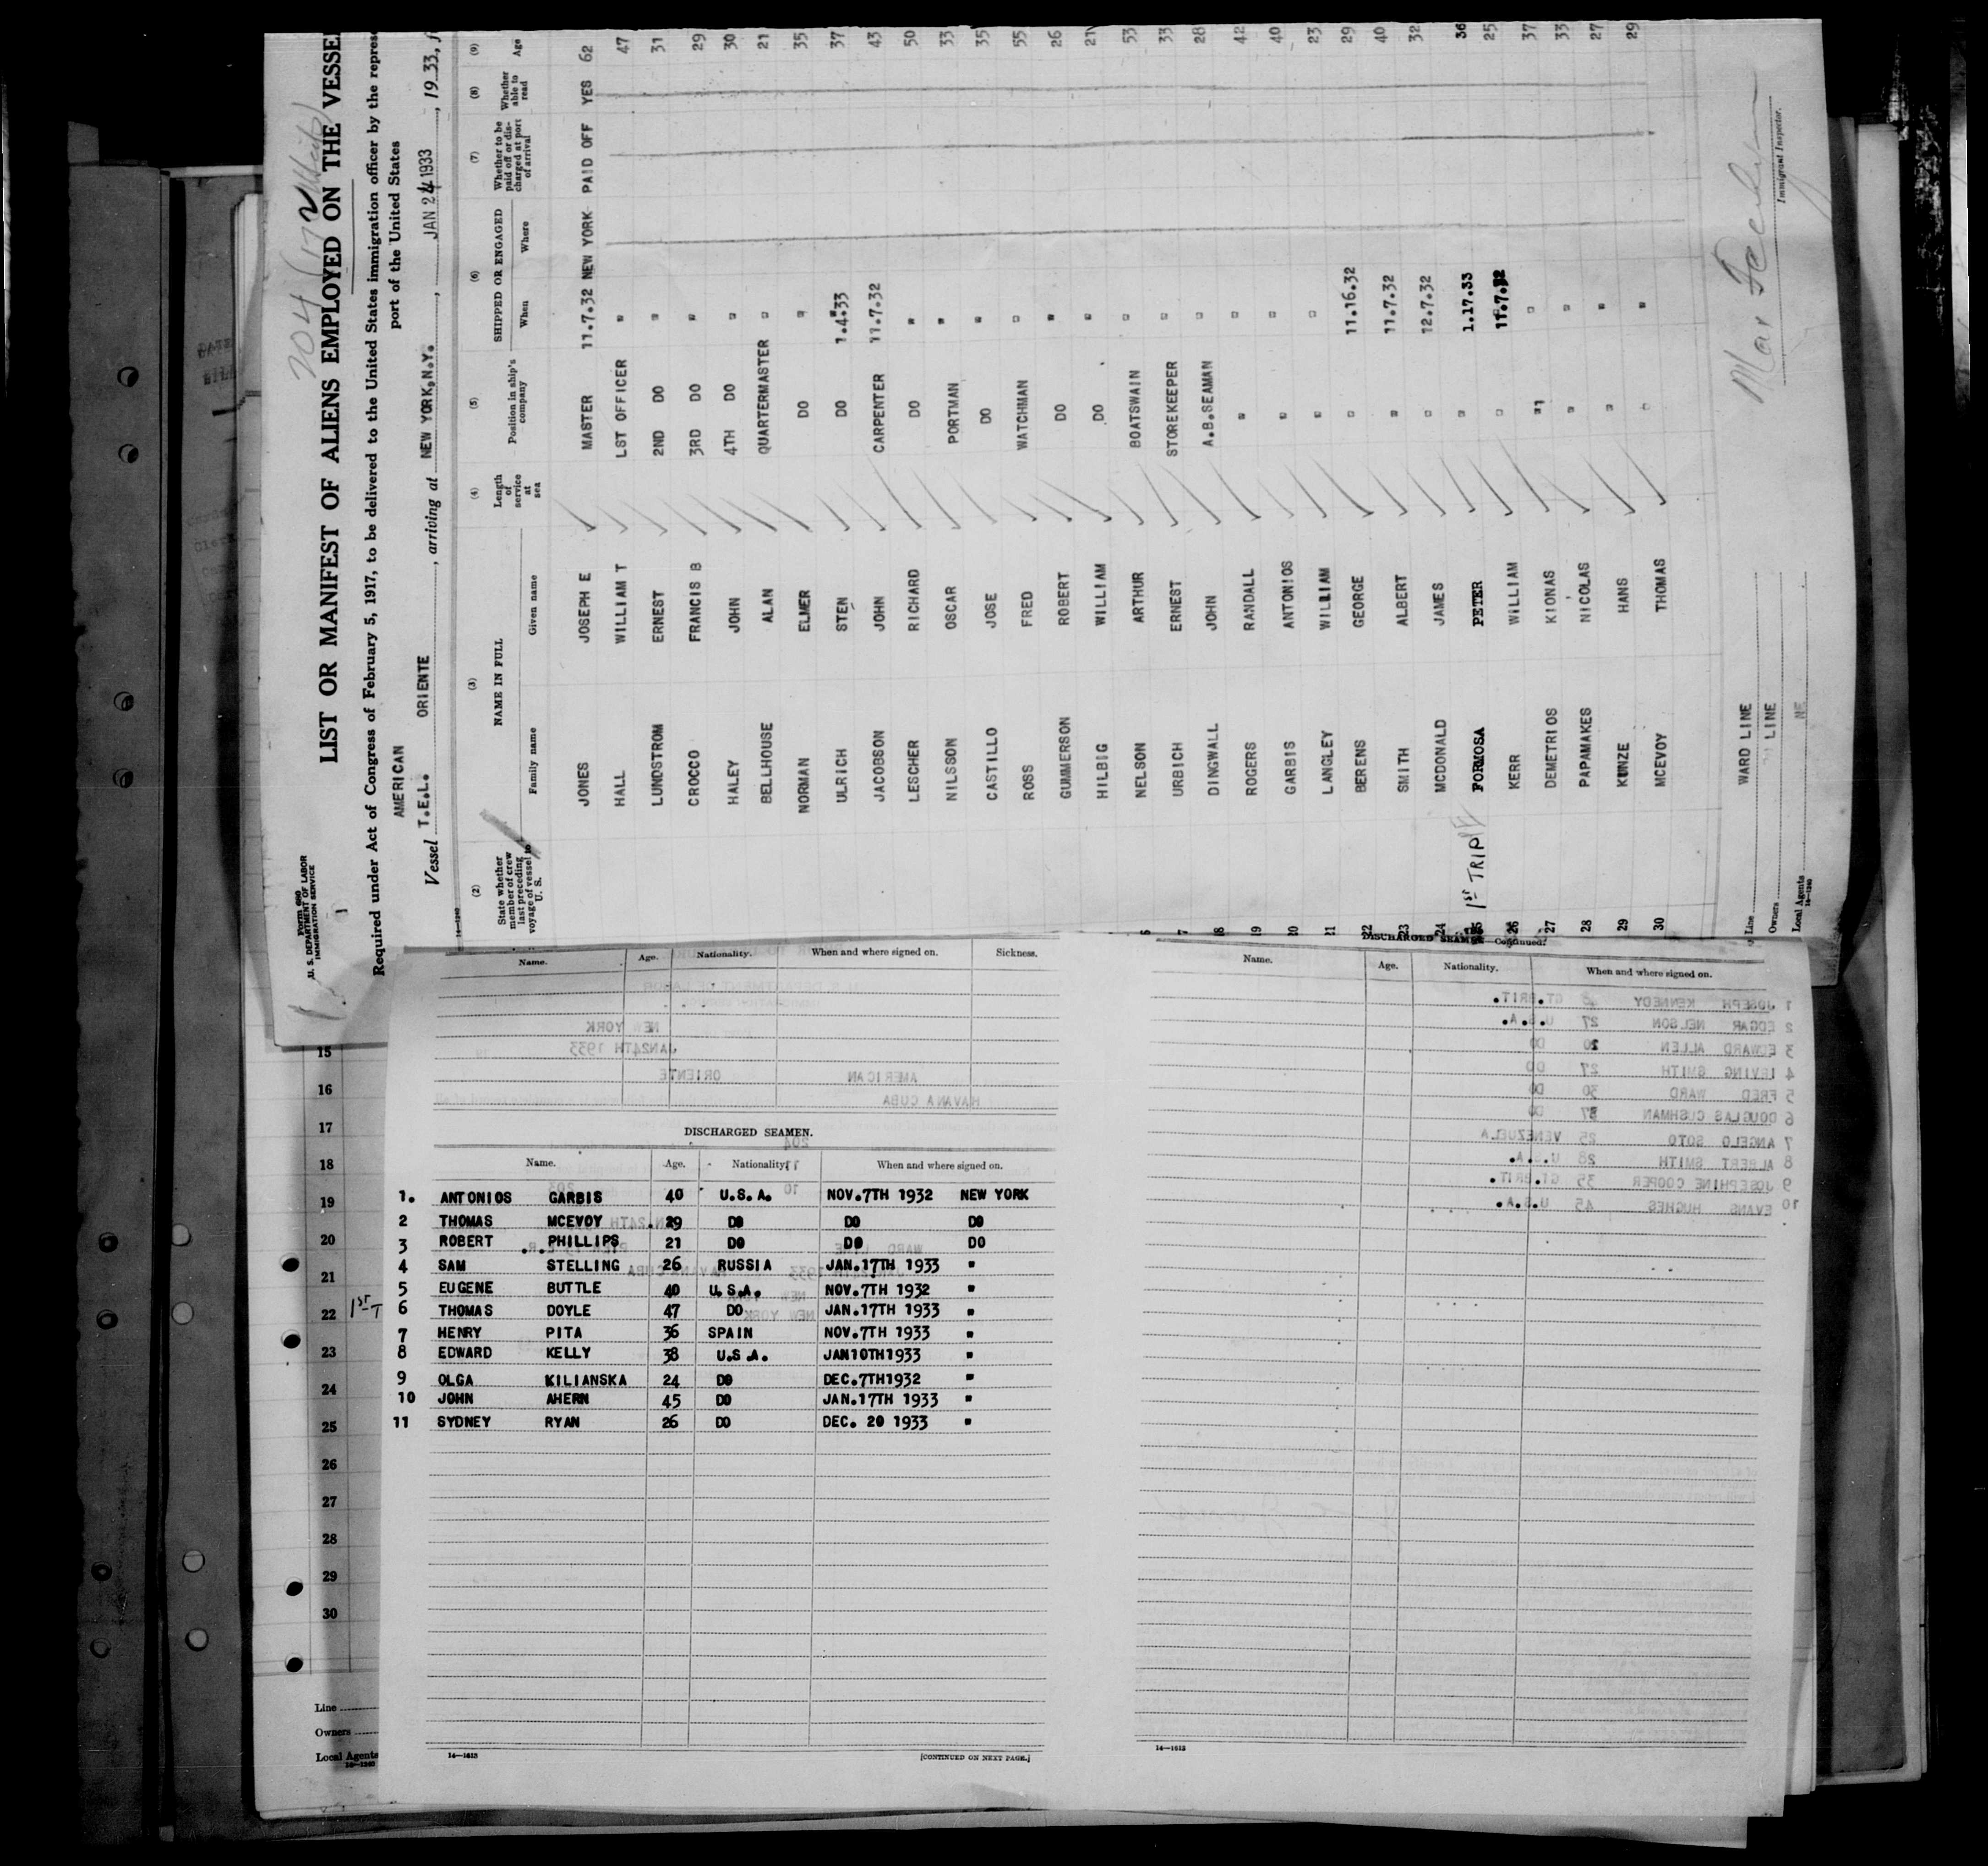 Form 680
U. S. DEPARTMENT OF LABOR
IMMIGRATION SERVICE
1
LIST OR MANIFEST OF ALIENS EMPLOYED ON THE VESSE
Required under Act of Congress of February 5, 1917, to be delivered to the United States immigration officer by the repres
port of the United States
AMERICAN
Vessel T.E.L. ORIENTE, arriving at NEW YORK,N.Y., JAN 24 1933, 1933, f
14-1240
(2) (3) (4) (5) (6) (7) (8) (9)
State whether member of crew last preceding voyage of vessel to U. S. NAME IN FULL Family name Given name Length of service at sea Position in ship's company SHIPPED OR ENGAGED When Where Whether to be paid off or discharged at port of arrival Whether able to read Age
JONES JOSEPH E MASTER 11.7.32 NEW YORK PAID OFF YES 62
HALL WILLIAM T LST OFFICER " 47
LUNDSTROM ERNEST 2ND DO " 31
CROCCO FRANCIS B 3RD DO " 29
HALEY JOHN 4TH DO " 30
BELLHOUSE ALAN QUARTERMASTER " 21
NORMAN ELMER DO " 35
ULRICH STEN DO 1.4.33 37
JACOBSON JOHN CARPENTER 11.7.32 43
LESCHER RICHARD DO " 50
NILSSON OSCAR PORTMAN " 33
CASTILLO JOSE DO " 35
ROSS FRED WATCHMAN " 55
GUMMERSON ROBERT DO " 26
HILBIG WILLIAM DO " 21
6 NELSON ARTHUR BOATSWAIN " 53
7 URBICH ERNEST STOREKEEPER " 33
18 DINGWALL JOHN A.B.SEAMAN " 28
19 ROGERS RANDALL " " 42
20 GARBIS ANTONIOS " " 40
21 LANGLEY WILLIAM " " 23
22 BERENS GEORGE " 11.16.32 29
23 SMITH ALBERT " 11.7.32 40
24 MCDONALD JAMES " 12.7.32 32
25 1st TRIP FORMOSA PETER " 1.17.33 36
26 KERR WILLIAM " 11.7.32 25
27 DEMETRIOS KIONAS " " 37
28 PAPAMAKES NICOLAS " " 33
29 KUNZE HANS " " 27
30 MCEVOY THOMAS " " 29
Line WARD LINE
Owners LINE
Local Agents
14-1240
Immigrant Inspector.
Name. Age. Nationality. When and where signed on. Sickness.
NEW YORK
JAN24TH 1933
AMERICAN ORIENTE
HAVANA CUBA
DISCHARGED SEAMEN.
Name. Age. Nationality. When and where signed on.
1. ANTONIOS GARBIS 40 U.S.A. NOV.7TH 1932 NEW YORK
2 THOMAS MCEVOY 29 DO DO DO
3 ROBERT PHILLIPS 21 DO DO DO
4 SAM STELLING 26 RUSSIA JAN.17TH 1933 "
5 EUGENE BUTTLE 40 U.S.A. NOV.7TH 1932 "
6 THOMAS DOYLE 47 DO JAN.17TH 1933 "
7 HENRY PITA 36 SPAIN NOV.7TH 1933 "
8 EDWARD KELLY 38 U.S.A. JAN10TH1933 "
9 OLGA KILIANSKA 24 DO DEC.7TH1932 "
10 JOHN AHERN 45 DO JAN.17TH 1933 "
11 SYDNEY RYAN 26 DO DEC. 20 1933 "
14—1613
[CONTINUED ON NEXT PAGE.]
DISCHARGED SEAMEN—Continued.
Name. Age. Nationality. When and where signed on.
1 JOSEPH KENNEDY GT.BRIT.
2 EDGAR NELSON 27 U.S.A.
3 EDWARD ALLEN 20 DO
4 IRVING SMITH 27 DO
5 FRED WARD 30 DO
6 DOUGLAS CUSHMAN 37 DO
7 ANGELO SOTO 25 VENEZUELA
8 ALBERT SMITH 28 U.S.A.
9 JOSEPHINE COOPER 35 GT.BRIT.
10 EVANS HUGHES 45 U.S.A.
14—1613
15
16
17
18
19
20
21
22 1st T
23
24
25
26
27
28
29
30
Line
Owners
Local Agents
14-1240